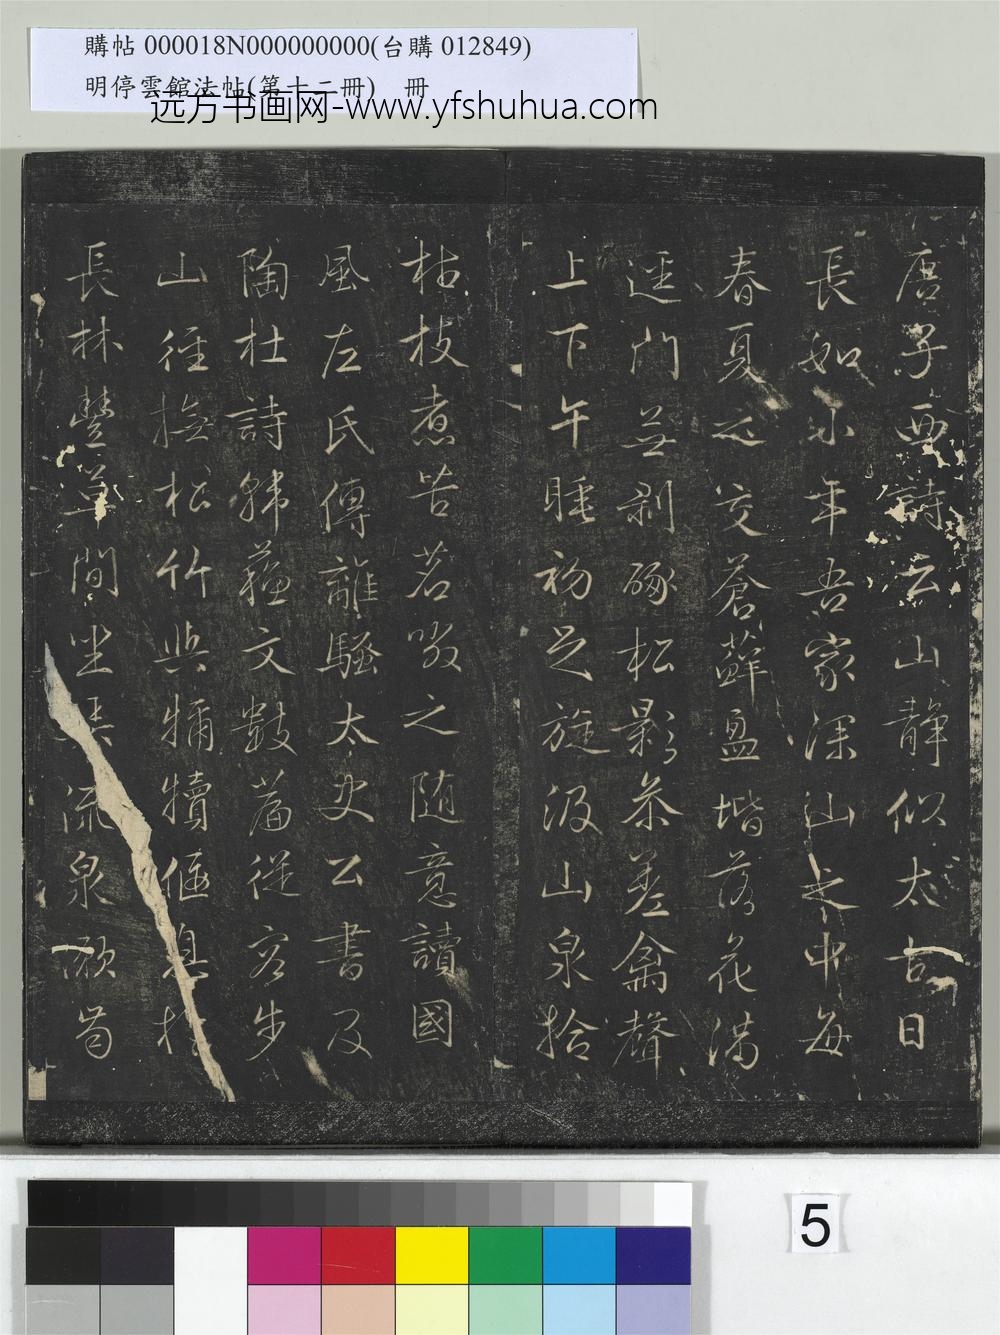 購帖 000018N000000000(台購 012849)
明停雲館法帖(第十二冊) 冊
远方书画网-www.yfshuhua.com
唐子西詩云山靜似太古日
長如小年吾家深山之中每
春夏之交蒼蘚盈堦落花滿
逕門無剥啄松影參差禽聲
上下午睡初足旋汲山泉拾
枯枝煮苦茗啜之随意讀國
風左氏傳離騷太史公書及
陶杜詩韓蘇文數篇從容步
山徑撫松竹與犢偃息於
長林豐草間坐弄流泉漱
5